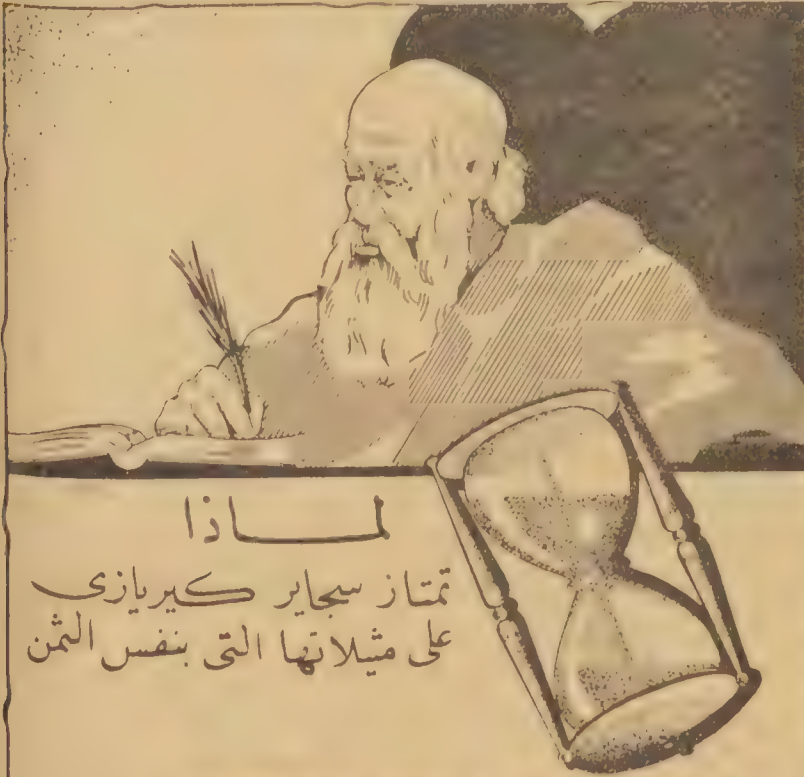 لماذا
تمتاز سجاير كيريازى
على مثيلاتها التى بنفس الثمن